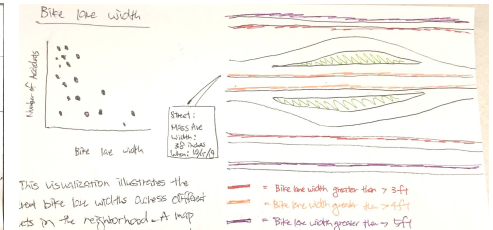 Bike lane width
Number of Accidents
Bike lane width
Street:
Mass Ave
Width:
38 inches
This visualization illustrates the
bike lane widths across different
in the neighborhood. A map
= Bike lane width greater than > 3ft
= Bike lane width greater than > 4ft
= Bike lane width greater than > 5ft